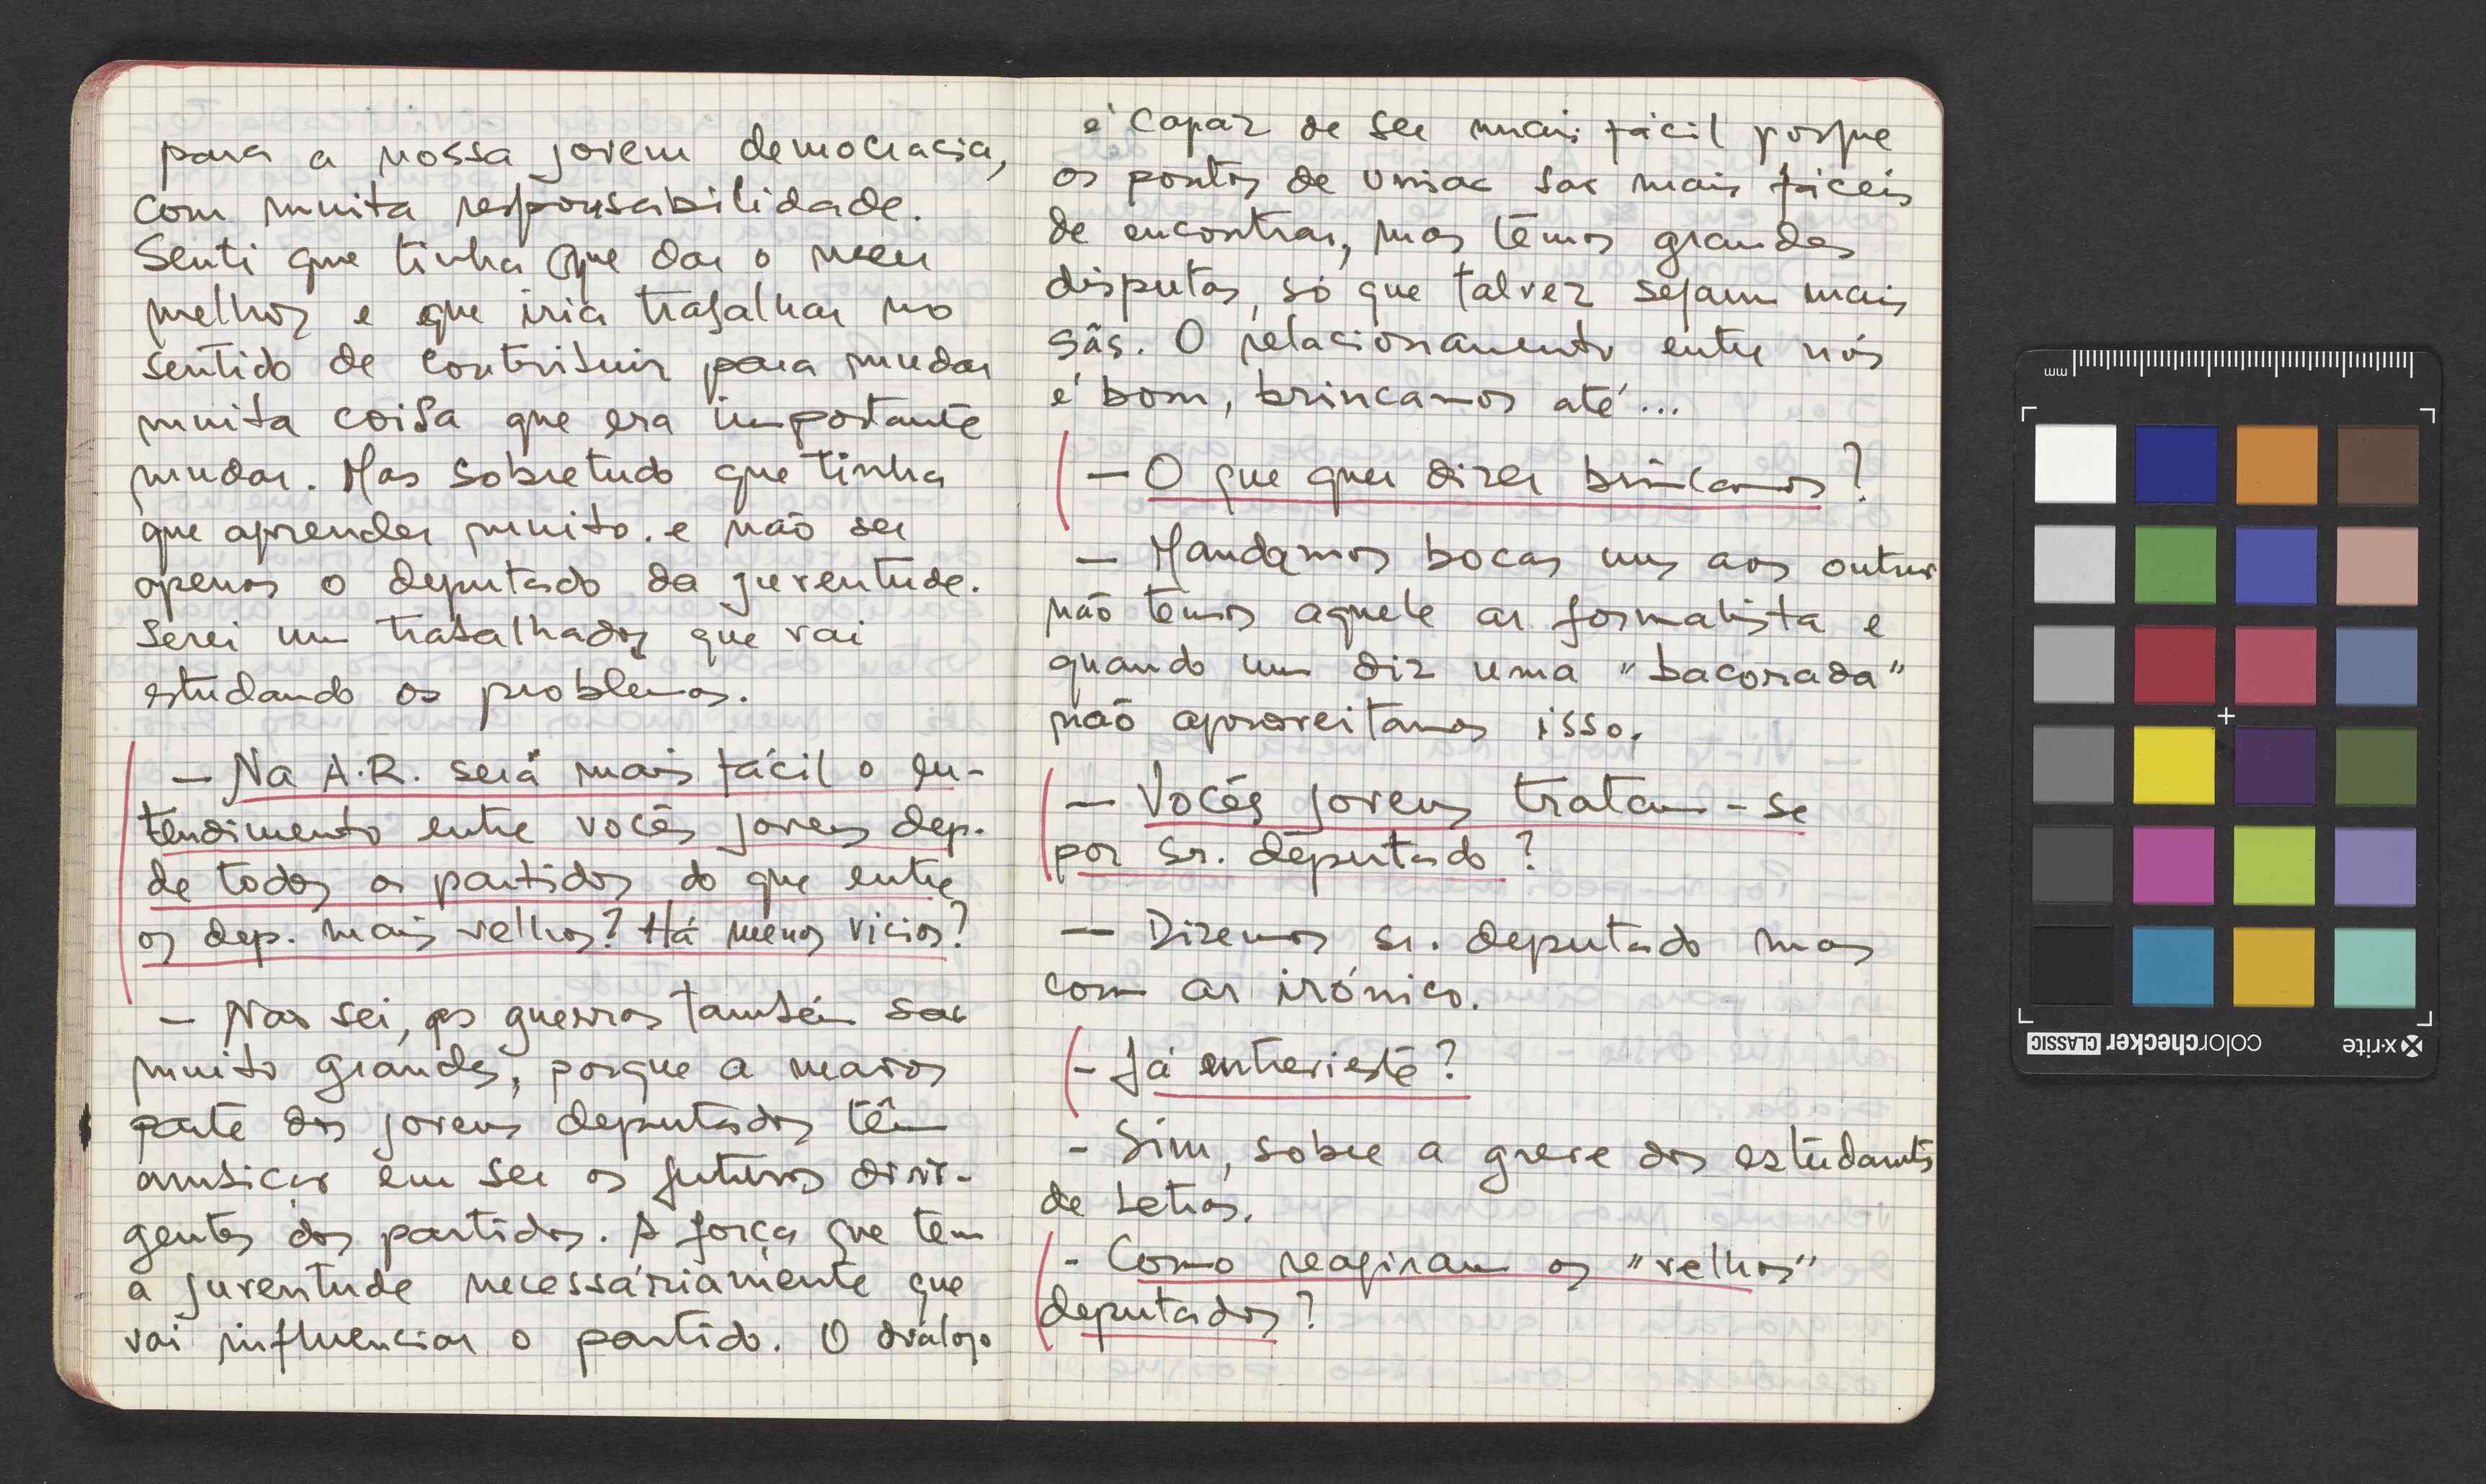 para a nossa jovem democracia,
com muita responsabilidade.
Senti que tinha que dar o meu
melhor e que iria trabalhar no
sentido de contribuir para mudar
muita coisa que era importante
mudar. Mas sobretudo que tinha
que aprender muito. e não ser
apenas o deputado da juventude.
Serei um trabalhador que vai
estudando os problemas.
— Na A.R. será mais fácil o en-
tendimento entre vocês jovens dep.
de todos os partidos do que entre
os dep. mais velhos? Há menos vicios?
— Não sei, as guerras também são
muito grandes, porque a maior
parte dos jovens deputados têm
ambição em ser os futuros diri-
gentes dos partidos. A força que tem
a juventude necessáriamente que
vai influenciar o partido. O diálogo
é capaz de ser mais fácil porque
os pontos de união são mais fáceis
de encontrar, mas têmos grandes
disputas, só que talvez sejam mais
sãs. O relacionamento entre nós
é bom, brincamos até...
— O que quer dizer brincamos?
— Mandamos bocas uns aos outros
não temos aquele ar formalista e
quando um diz uma "bacorada"
não aproveitamos isso.
— Vocês jovens tratam-se
por sr. deputado?
— Dizemos sr. deputado mas
com ar irónico.
- Já interveio?
- Sim, sobre a greve dos estudantes
de Letras.
- Como reagiram os "velhos"
deputados?
mm
x-rite
colorchecker CLASSIC